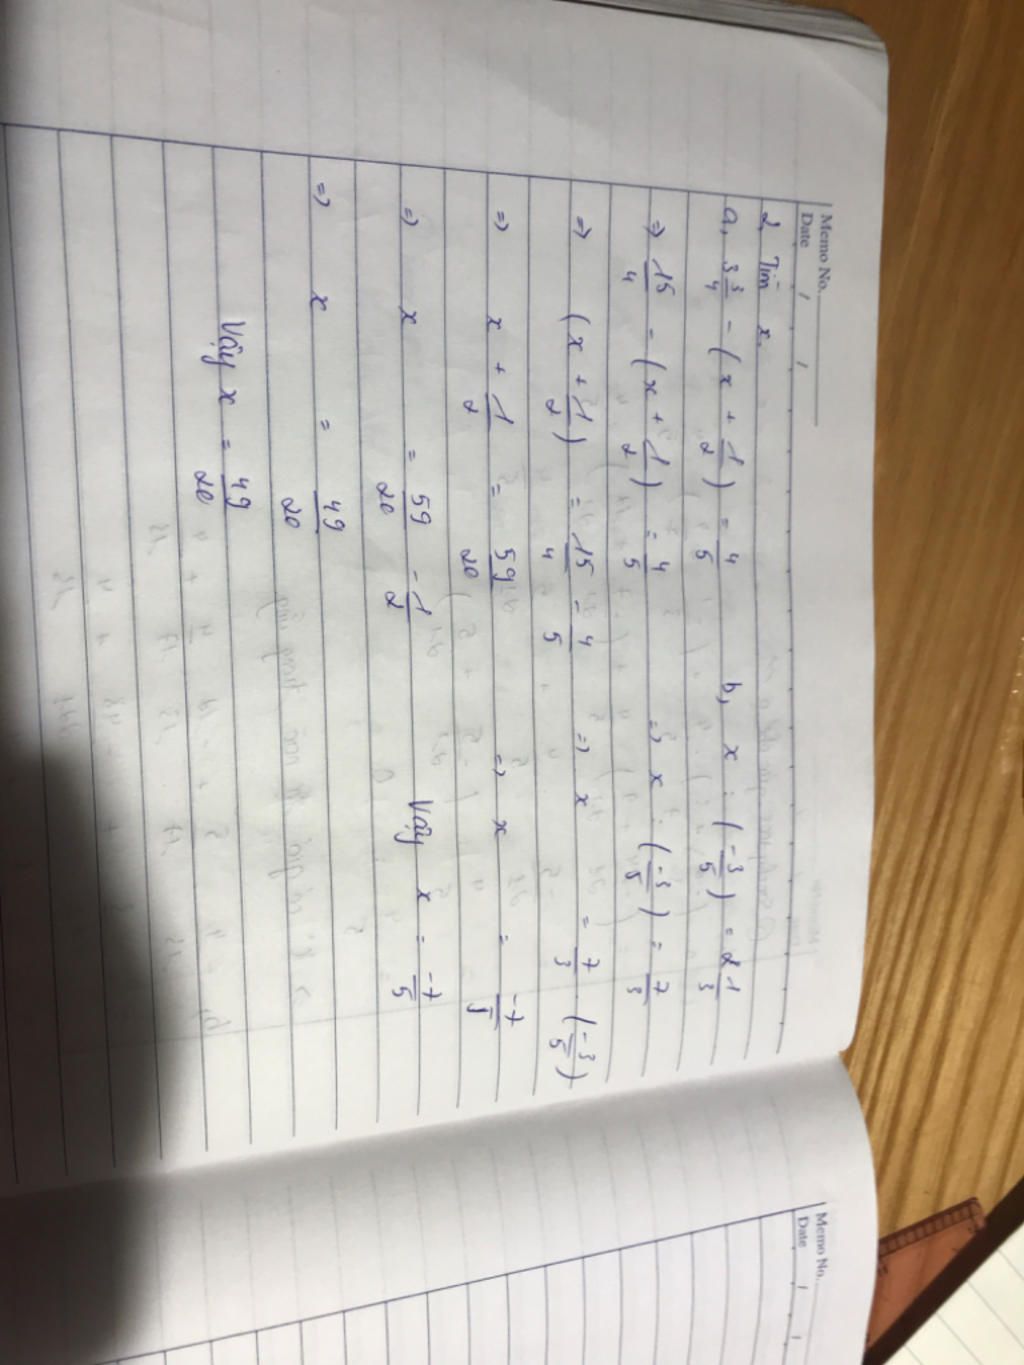 Memo No.
Date / /
2, Tìm x.
a, 3 3/4 - (x + 1/2) = 4/5
=> 15/4 - (x + 1/2) = 4/5
=> (x + 1/2) = 15/4 - 4/5
=> x + 1/2 = 59/20
=> x = 59/20 - 1/2
=> x = 49/20
Vậy x = 49/20
b, x : (-3/5) = 2 1/3
=> x : (-3/5) = 7/3
=> x = 7/3 . (-3/5)
=> x = -7/5
Vậy x = -7/5
Memo No.
Date / /